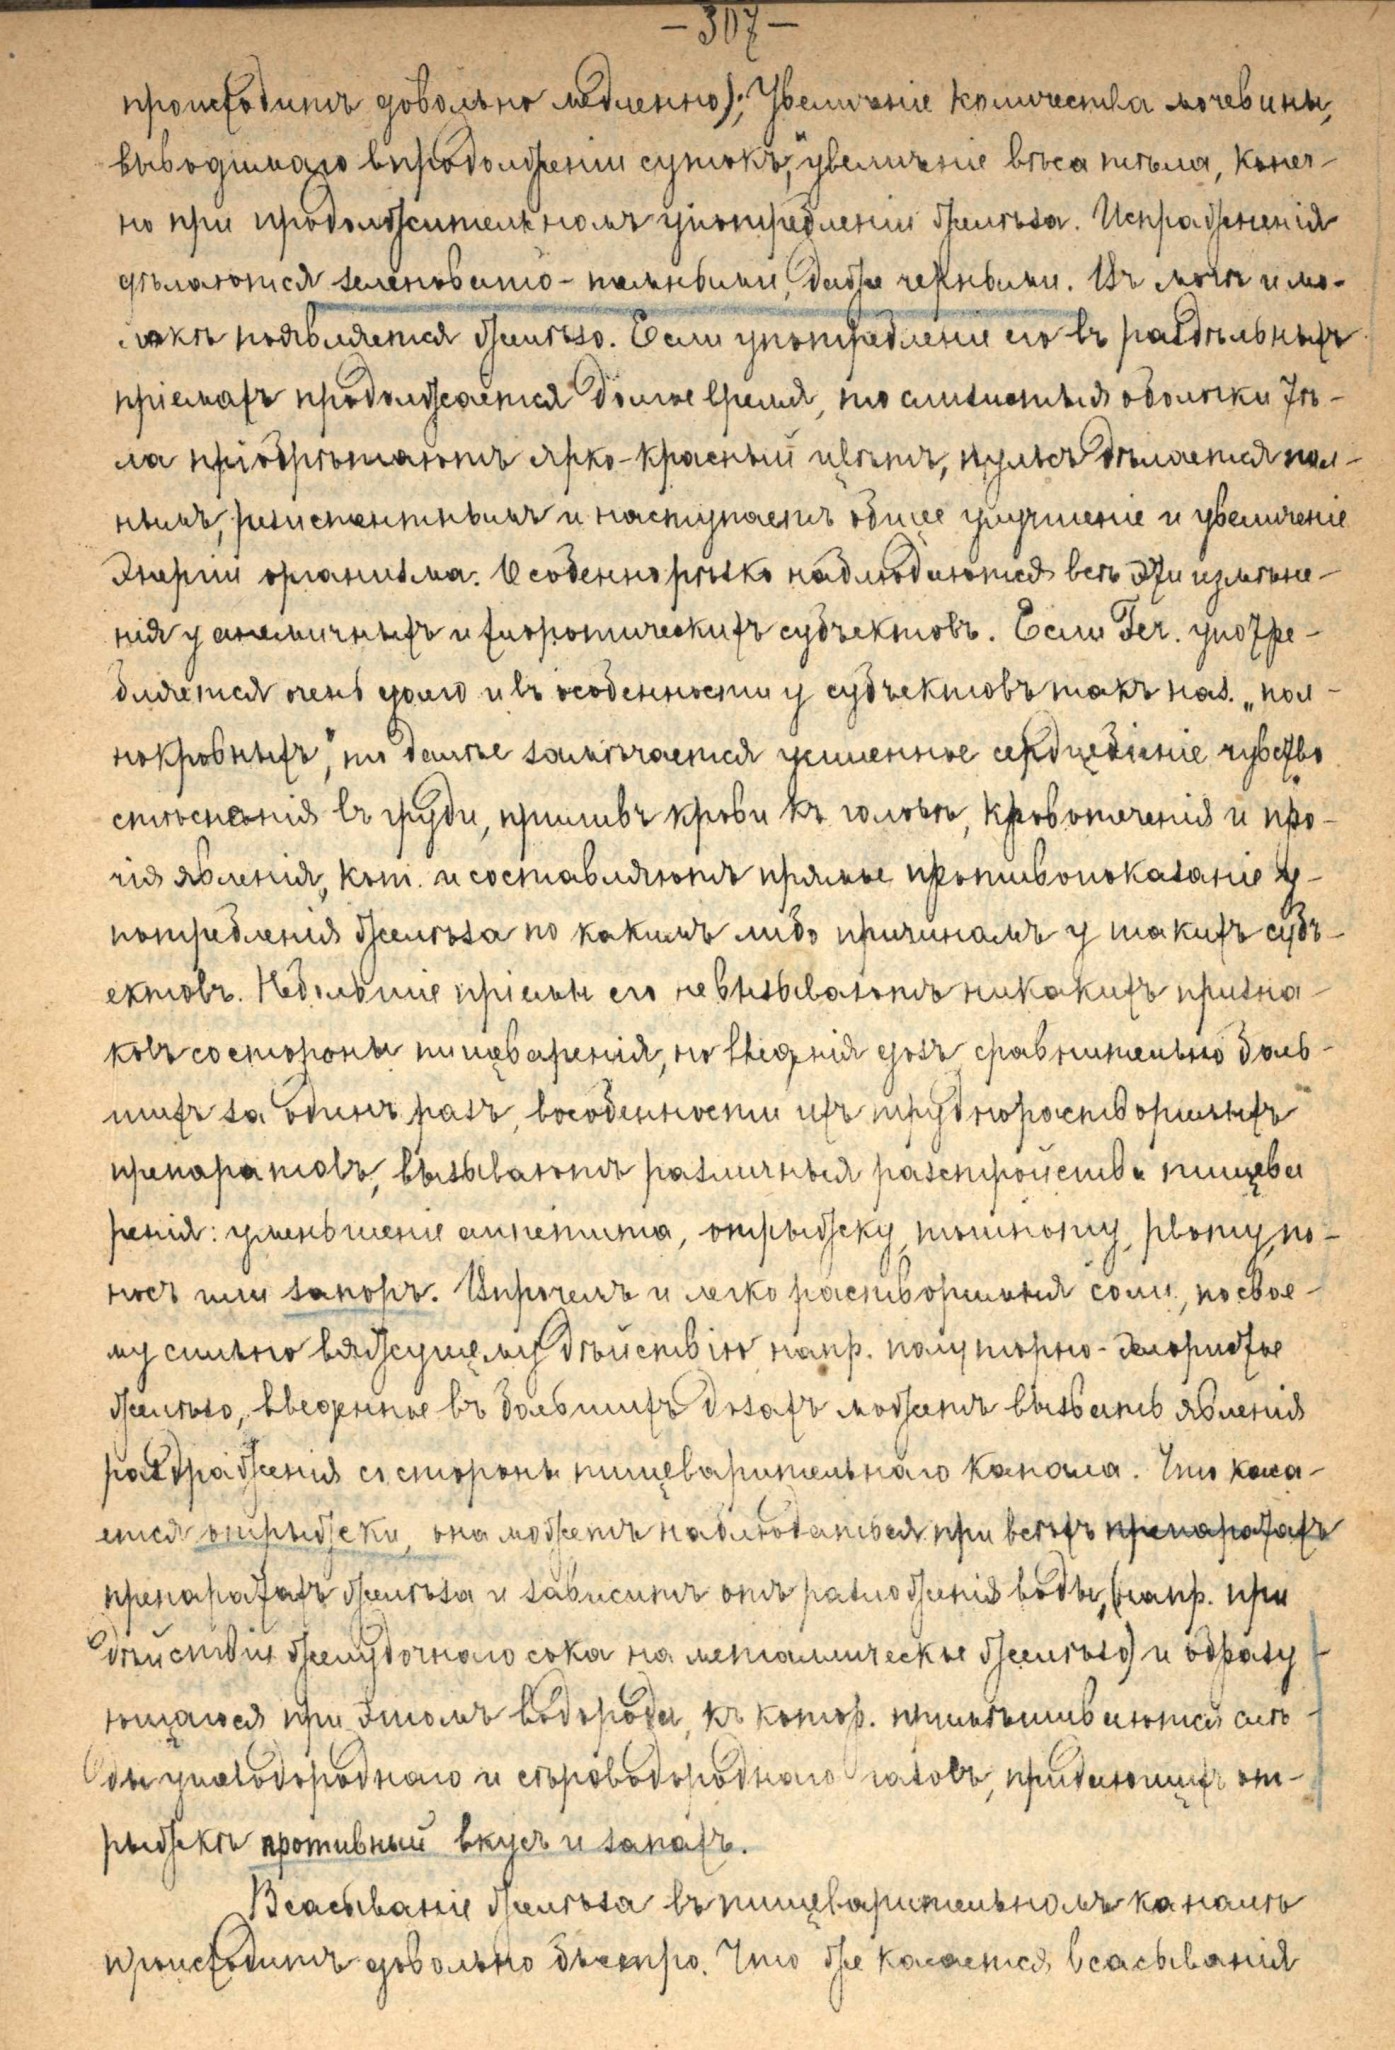 — 307 —
происходитъ довольно медленно); Увеличеніе количества мочевины,
выводимаго впродолженіи сутокъ, увеличеніе вѣса тѣла, конеч-
но при продолжительномъ употребленіи желѣза. Испражненія
дѣлаются зеленовато-темными, даже черными. Въ мочѣ и мо-
локѣ появляется желѣзо. Если употребленіе его въ раздѣльныхъ
пріемахъ продолжается долгое время, то слизистыя оболочки тѣ-
ла пріобрѣтаютъ ярко-красный цвѣтъ, пульсъ дѣлается пол-
нымъ, резистентнымъ и наступаетъ общее улучшеніе и увеличеніе
энергіи организма. Особенно рѣзко наблюдаются всѣ эти измѣне-
нія у анемичныхъ и хлоротическихъ субъектовъ. Если Fer. употре-
бляется очень долго и въ особенности у субъектовъ такъ наз. „пол-
нокровныхъ", то далѣе замѣчается усиленное сердцебіеніе чувство
стѣсненія въ груди, приливъ крови къ головѣ, кровотеченія и про-
чія явленія, кот. и составляютъ прямое противопоказаніе у-
потребленія желѣза по какимъ либо причинамъ у такихъ субъ-
ектовъ. Небольшіе пріемы его невызываютъ никакихъ призна-
ковъ состороны пищеваренія, но введенія дозъ сравнительно боль-
шихъ за одинъ разъ, вособенности изъ труднорастворимыхъ
препаратовъ, вызываютъ различныя разстройства пищева
ренія: уменьшеніе аппетита, отрыжку, тошноту, рвоту, по-
носъ или запоръ. Впрочемъ и легко растворимыя соли, по свое-
му сильно вяжущему дѣйствію напр. полуторно-хлористое
желѣзо, введенное въ большихъ дозахъ можетъ вызвать явленія
раздраженія со стороны пищеварительнаго канала. Что каса-
ется отрыжки, она можетъ наблюдаться при всѣхъ препаратахъ
препаратахъ желѣза и зависитъ отъ разложенія воды, (напр. при
дѣйствіи желудочнаго сока на металлическое желѣзо) и образу
ющагося при этомъ водорода, къ котор. примѣшиваются слѣ-
ды углеводороднаго и сѣроводороднаго газовъ, придающихъ от-
рыжкѣ противный вкусъ и запахъ.
Всасываніе желѣза въ пищеварительномъ каналѣ
происходитъ довольно быстро. Что же касается всасыванія